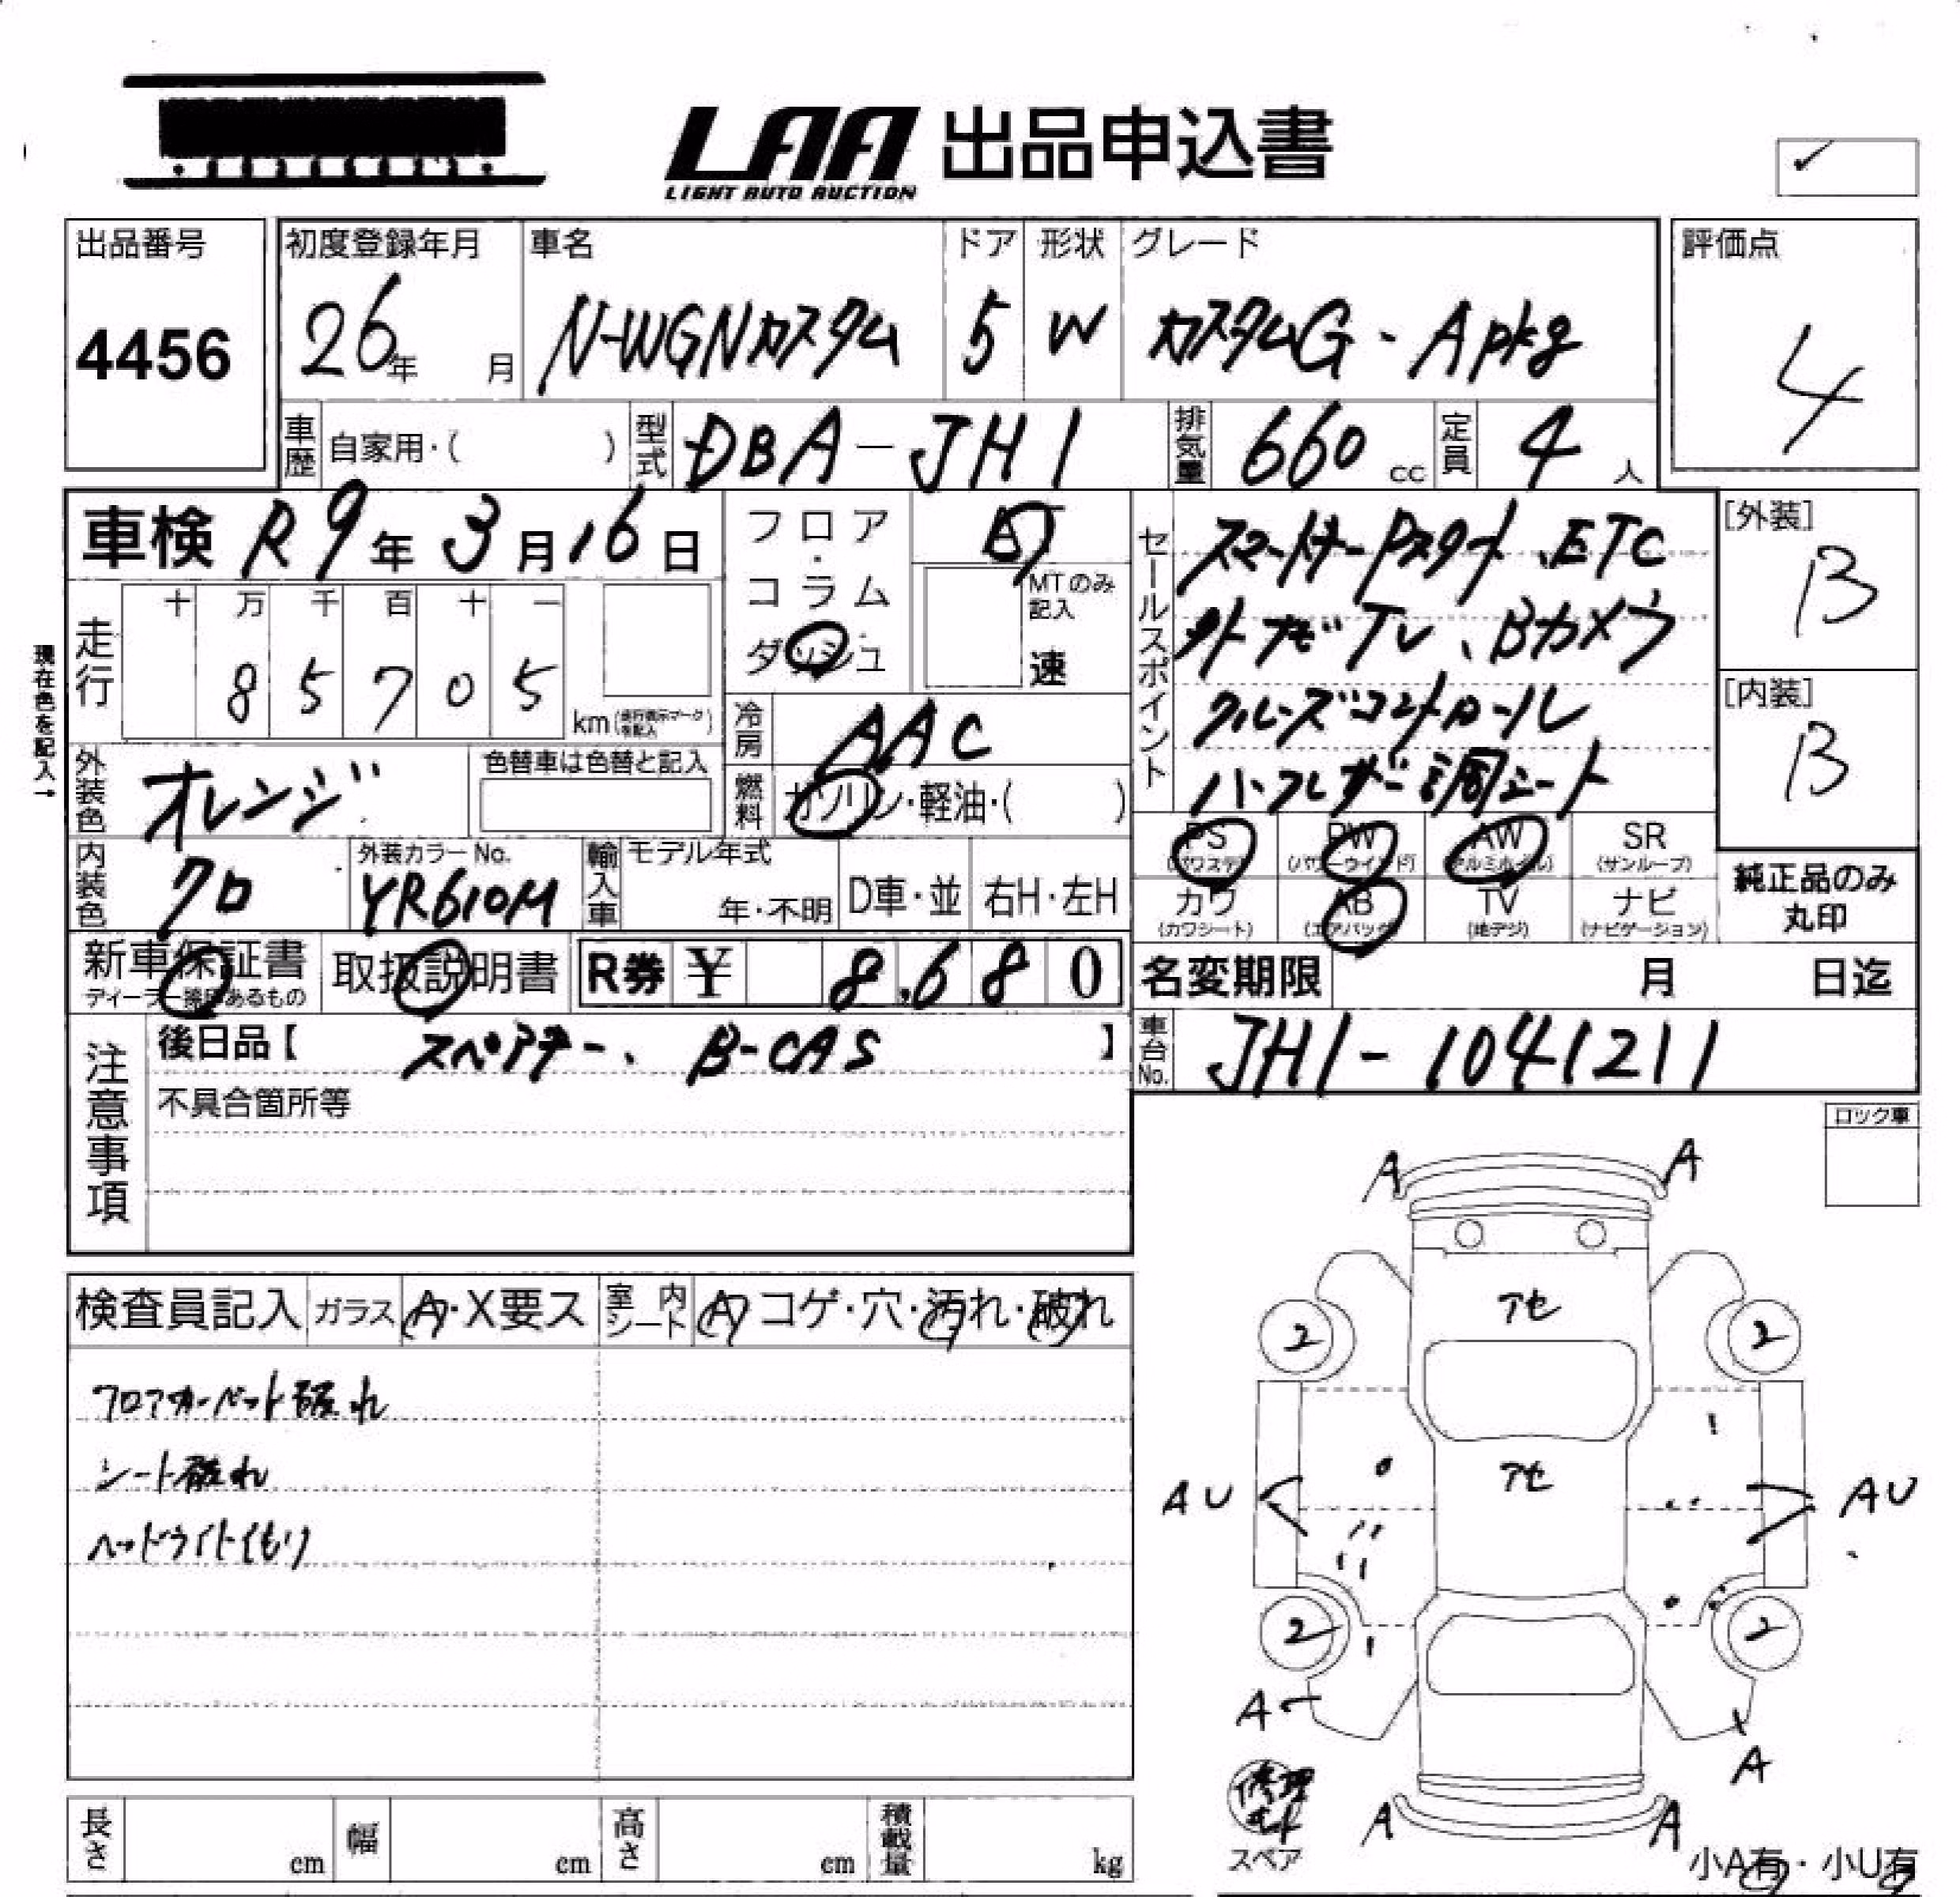 LAA 出品申込書
LIGHT AUTO AUCTION
出品番号
4456
初度登録年月
26年 月
車名
N-WGNカスタム
ドア
5
形状
W
グレード
カスタムG・Apkg
評価点
4
車歴 自家用・( )
型式 DBA-JH1
排気量 660 cc
定員 4 人
車検 R9年3月16日
フロア・コラム
ダッシュ
AT
MTのみ記入
速
セールスポイント
スマートキー Pスタート、ETC
外ナビTV、Bカメラ
クルーズコントロール
ハーフレザー調シート
[外装]
B
[内装]
B
現在色を記入→
走行
十 万 千 百 十 一
8 5 7 0 5
km(走行表示マークを記入)
冷房 AAC
燃料 ガソリン・軽油・( )
外装色 オレンジ
色替車は色替と記入
内装色 クロ
外装カラーNo.
YR610M
輸入車
モデル年式
年・不明
D車・並
右H・左H
PS (パワステ)
PW (パワーウインド)
AW (アルミホイル)
SR (サンルーフ)
カワ (カワシート)
AB (エアバック)
TV (地デジ)
ナビ (ナビゲーション)
純正品のみ
丸印
新車保証書
取扱説明書
R券 ¥ 8,680
名変期限 月 日迄
車台No. JH1-1041211
注意事項
後日品【 スペアキー、B-CAS 】
不具合箇所等
ロック車
検査員記入
ガラス A・X要ス
室内シート A コゲ・穴・汚れ・破れ
フロアカーペット破れ
シート破れ
ヘッドライトくもり
A A
アセ
2 2
アセ
AU AU
2 2
A A
修理キット
スペア
A A
小A有・小U有
長さ cm
幅 cm
高さ cm
積載量 kg